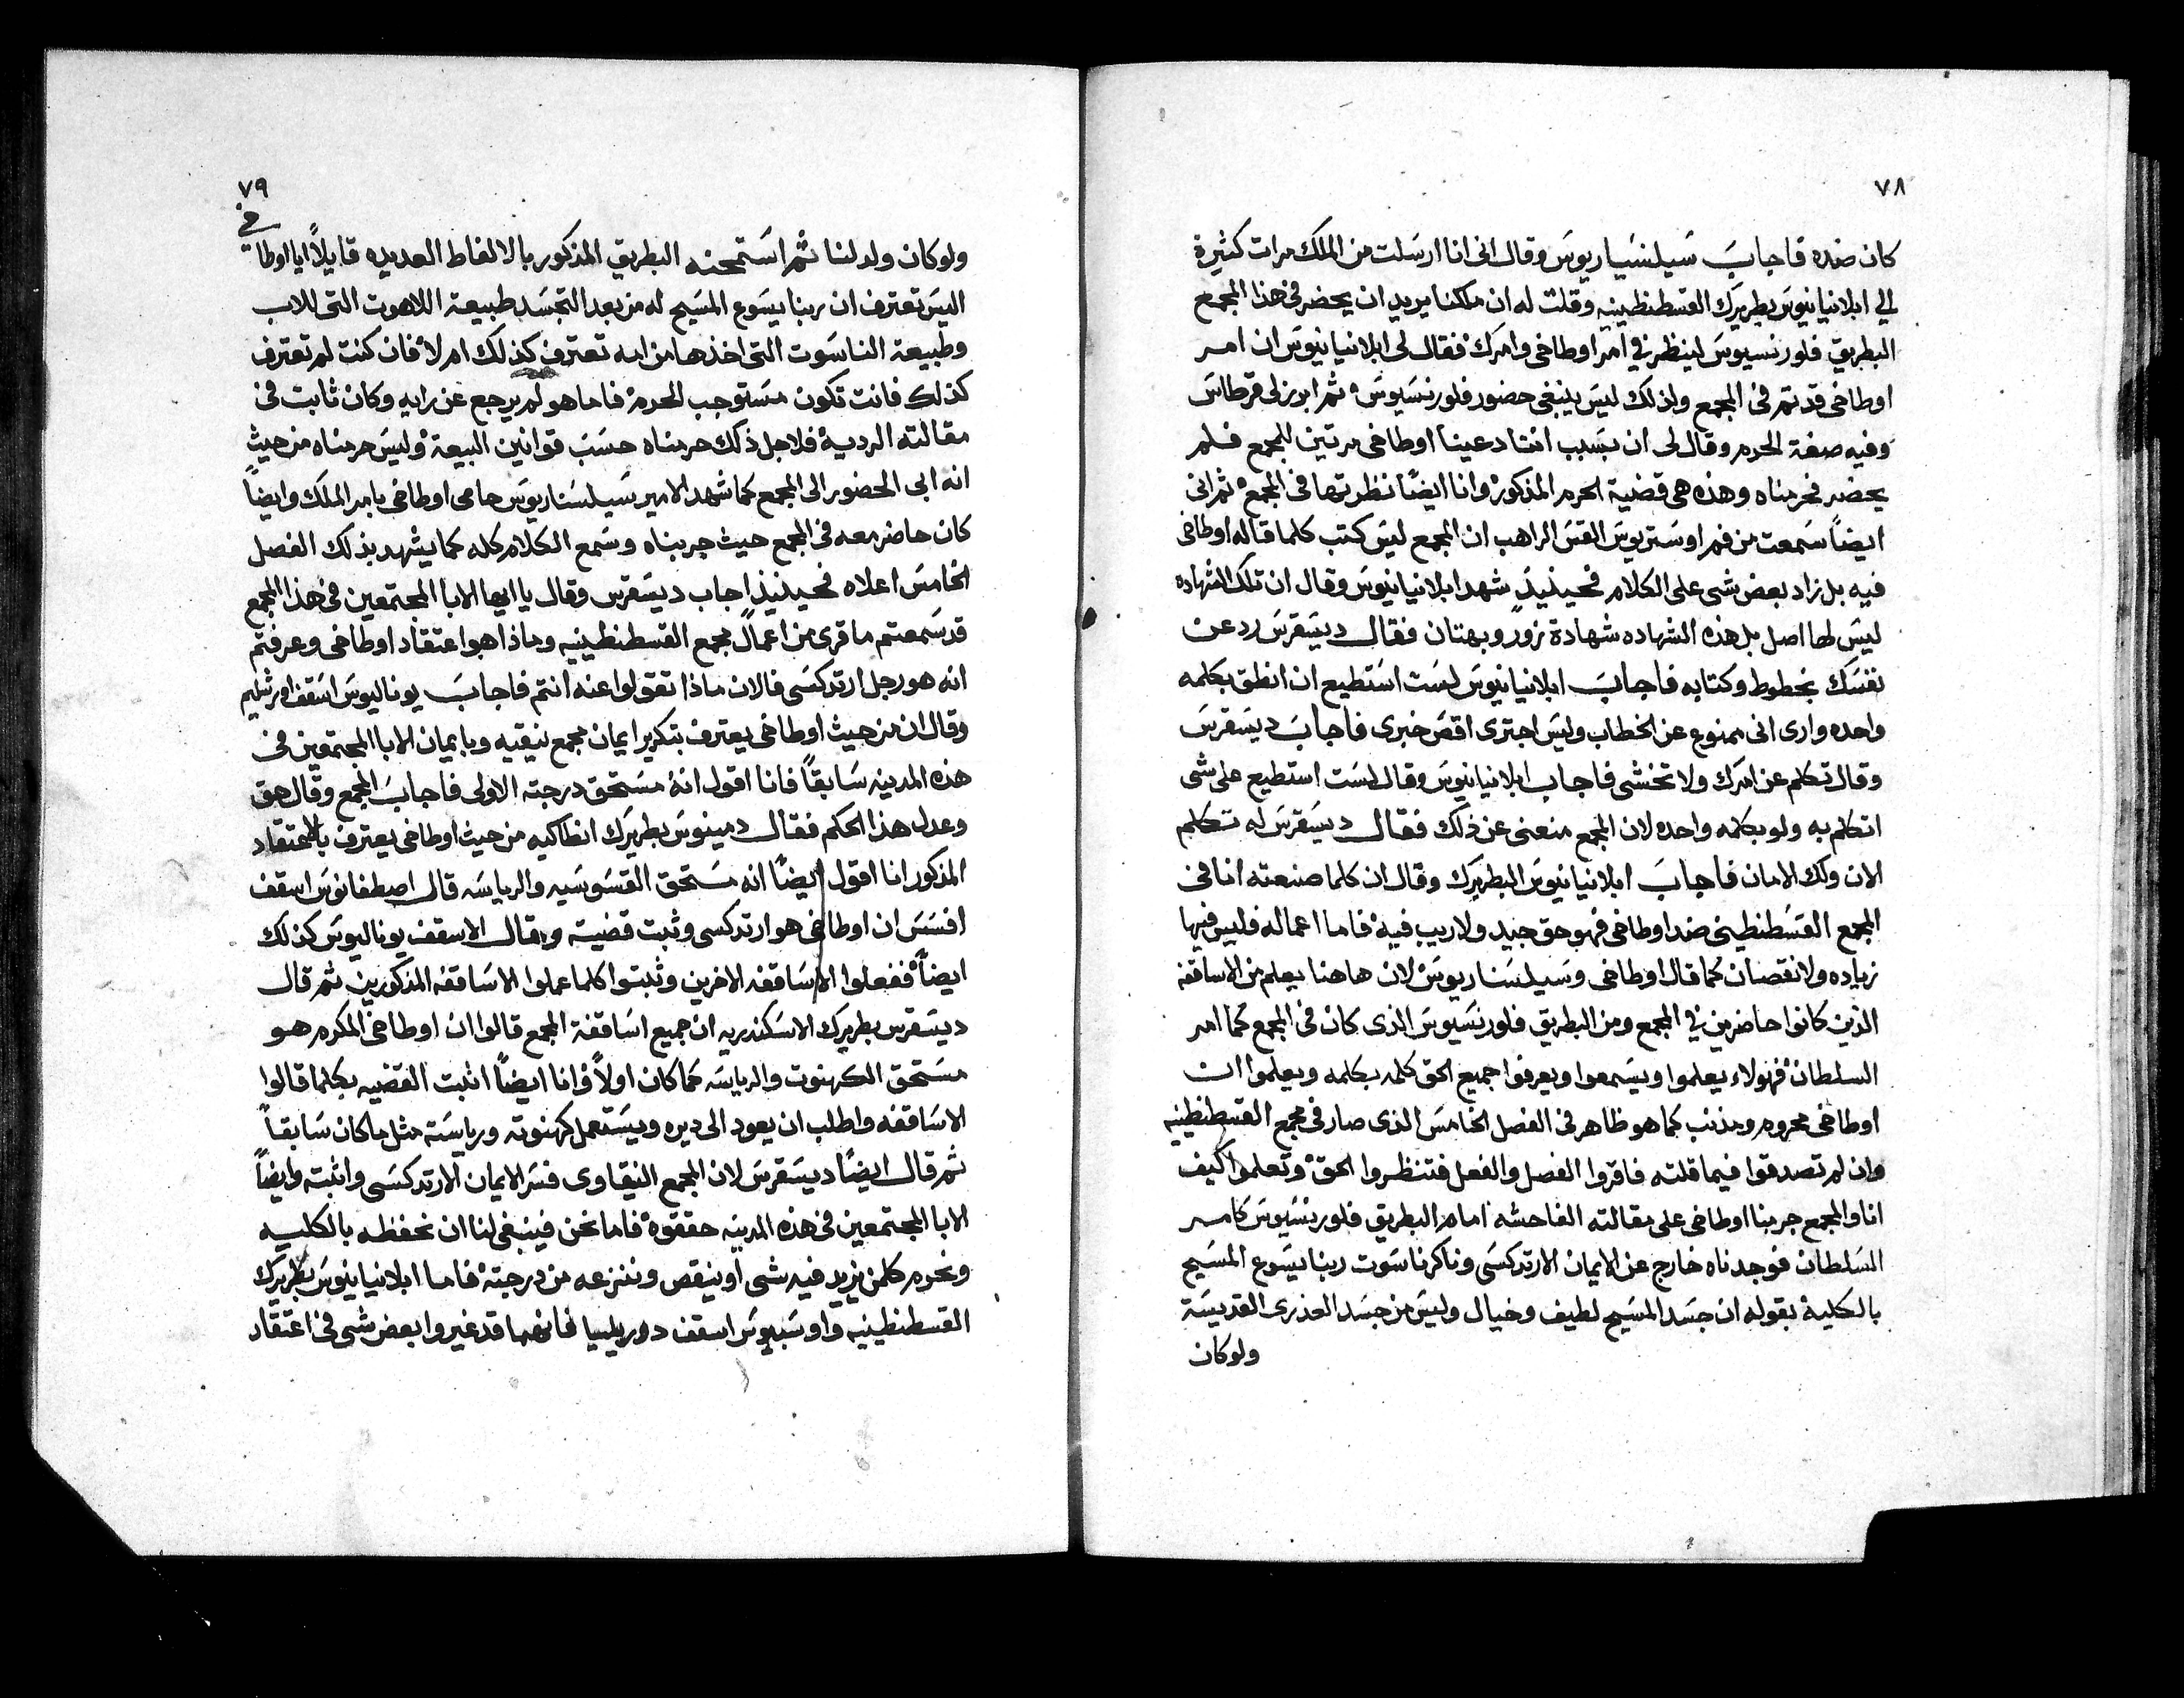 ٧٨
كان ضده فاجاب سيلنسياريوس وقال انى انا ارسلت من الملك مرات كثيرة
الي ابلانيانيوس بطريرك القسطنطينيه وقلت له ان ملكنا يريد ان يحضر فى هذا المجمع
البطريق فلورنسيوس لينظر في امر اوطاخى وامرك فقال لى ابلانيانيوس ان امر
اوطاخى قد تم فى المجمع ولذلك ليس ينبغى حضور فلورنسيوس ثم ابرز لى قرطاس
وفيه صفة الحرم وقال لى ان بسبب اننا دعينا اوطاخى مرتين للمجمع فلم
يحضر فحرمناه وهذه هى قضية الحرم المذكور وانا ايضًا نظرتها فى المجمع ثم انى
ايضًا سمعت من فم اوستريوس القس الراهب ان المجمع ليس كتب كلما قاله اوطاخى
فيه بل زاد بعض شى على الكلام فحينيذٍ شهد ابلانيانيوس وقال ان تلك الشهاده
ليس لها اصل بل هذه الشهاده شهادة زور وبهتان فقال ديسقرس رد عن
نفسك بخطوط وكتابه فاجاب ابلانيانيوس لست استطيع ان انطق بكلمه
واحده وارى انى ممنوع عن الخطاب وليس اجترى اقص خبرى فاجاب ديسقرس
وقال تكلم عن امرك ولا تخشى فاجاب ابلانيانيوس وقال لست استطيع على شى
اتكلم به ولو بكلمه واحده لان المجمع منعنى عن ذلك فقال ديسقرس له تتكلم
الان ولك الامان فاجاب ابلانيانيوس البطريرك وقال ان كلما صنعته انا فى
المجمع القسطنطينى ضد اوطاخى فهو حق جيد ولا ريب فيه فاما اعماله فليس فيها
زياده ولا نقصان كما قال اوطاخى وسيلسناريوس لان هاهنا يعلم من الاساقفه
الذين كانوا حاضرين في المجمع ومن البطريق فلورنسيوس الذى كان فى المجمع كما امر
السلطان فهولاء يعلموا ويسمعوا ويعرفوا جميع الحق كلمه بكلمه ويعلموا ان
اوطاخى محروم ومذنب كما هو ظاهر فى الفصل الخامس الذى صار فى مجمع القسطنطينيه
وان لم تصدقوا فيما قلته فاقروا الفصل والفعل فتنظروا الحق وتعلموا كيف
انا والمجمع جربنا اوطاخى على مقالته الفاحشه امام البطريق فلورنسيوس كامر
السلطان فوجدناه خارج عن الايمان الارتدكسى وناكر ناسوت ربنا يسوع المسيح
بالكلية بقوله ان جسد المسيح لطيف وخيال وليس من جسد العذرى القديسة
ولو كان
٧٩
ولو كان ولد لنا ثم استمحنه البطريق المذكور بالالفاط العديده قايلًا ايا اوطاخى
اليس تعترف ان ربنا يسوع المسيح له من بعد التجسد طبيعة اللاهوت التى للاب
وطبيعة الناسوت التى اخذها من امه تعترف كذلك ام لا فان كنت لم تعترف
كذلك فانت تكون مستوجب الحرم فاما هو لم يرجع عن رايه وكان ثابت فى
مقالته الرديه فلاجل ذلك حرمناه حسب قوانين البيعة وليس حرمناه من حيث
انه ابى الحضور الى المجمع كما شهد الامير سيلسناريوس حامى اوطاخى بامر الملك وايضًا
كان حاضر معه فى المجمع حيث جربناه وسمع الكلام كله كما يشهد بذلك الفصل
الخامس اعلاه فحينيذٍ اجاب ديسقرس وقال يا ايها الابا المجتمعين فى هذا المجمع
قد سمعتم ما قرى من اعمال مجمع القسطنطينيه وماذا هو اعتقاد اوطاخى وعرفتم
انه هو رجل ارتدكسى فالان ماذا تقولوا عنه انتم فاجاب يوناليوس اسقف اورشليم
وقال ان من حيث اوطاخى يعترف بتكرير ايمان مجمع نيقيه وبايمان الابا المجتمعين فى
هذه المدينه سابقًا فانا اقول انه مستحق درجته الاولى فاجاب المجمع وقال حق
وعدل هذا الحكم فقال دمينوس بطريرك انطاكيه من حيث اوطاخى يعترف بالاعتقاد
المذكور انا اقول ايضًا انه مستحق القسوسيه والرياسه قال اصطفانوس اسقف
افسس ان اوطاخى هو ارتدكسى وثبت قضيته وقال الاسقف يوناليوس كذلك
ايضًا ففعلوا الاساقفه الاخرين وثبتوا كلما عملوا الاساقفه المذكورين ثم قال
ديسقرس بطريرك الاسكندريه ان جميع اساقفة المجمع قالوا ان اوطاخى المكرم هو
مستحق الكهنوت والرياسه كما كان اولًا وانا ايضًا اثبت القضيه بكلما قالوا
الاساقفه واطلب ان يعود الى ديره ويستعمل كهنوته ورياسته مثل ما كان سابقًا
ثم قال ايضًا ديسقرس لان المجمع النيقاوى فسر الايمان الارتدكسى واثبته وايضًا
الابا المجتمعين فى هذه المدينه حققوه فاما نحن فينبغى لنا ان نحفظه بالكليه
ونحرم كلمن يزيد فيه شى او ينقص وننزعه من درجته فاما ابلانيانيوس بطريرك
القسطنطينيه واوسبيوس اسقف دوريليا فانهما قد غيروا بعض شى فى اعتقاد